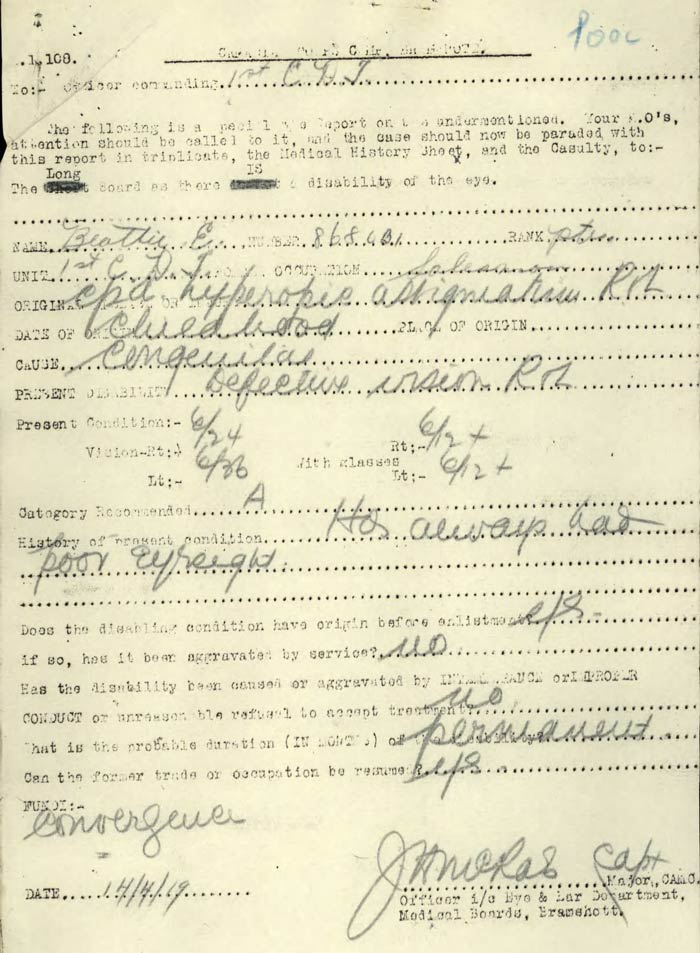 Pooc
.1.108.
To:- Officer commanding 1st C.D.D.
The following is a special Eye Report on the undermentioned. Your M.O's,
attention should be called to it, and the case should now be paraded with
this report in triplicate, the Medical History Sheet, and the Casulty, to:-
Long IS
The Board as there a disability of the eye.
NAME Beattie E. NUMBER 868 RANK pte.
UNIT 1st C.D.D. OCCUPATION
ORIGINAL cpd hyperopic astigmatism R & L
DATE OF ORIGIN childhood PLACE OF ORIGIN
CAUSE congenital
PRESENT DISABILITY Defective vision R & L
Present Condition:-
Vision-Rt:- 6/24 Rt:- 6/12 +
With glasses
Lt:- 6/36 Lt:- 6/12 +
Category Recommended A
History of present condition Has always had
poor eyesight.
Does the disabling condition have origin before enlistment? yes
if so, has it been aggravated by service? no
Has the disability been caused or aggravated by INTEMPERANCE or IMPROPER
CONDUCT or unreasonable refusal to accept treatment? no
What is the probable duration (IN MONTHS) of the disability? permanent
Can the former trade or occupation be resumed? yes
FUNDI:-
convergence
J H McRae Capt
Major, CAMC.
DATE 14/4/19
Officer i/c Eye & Ear Department,
Medical Boards, Bramshott.